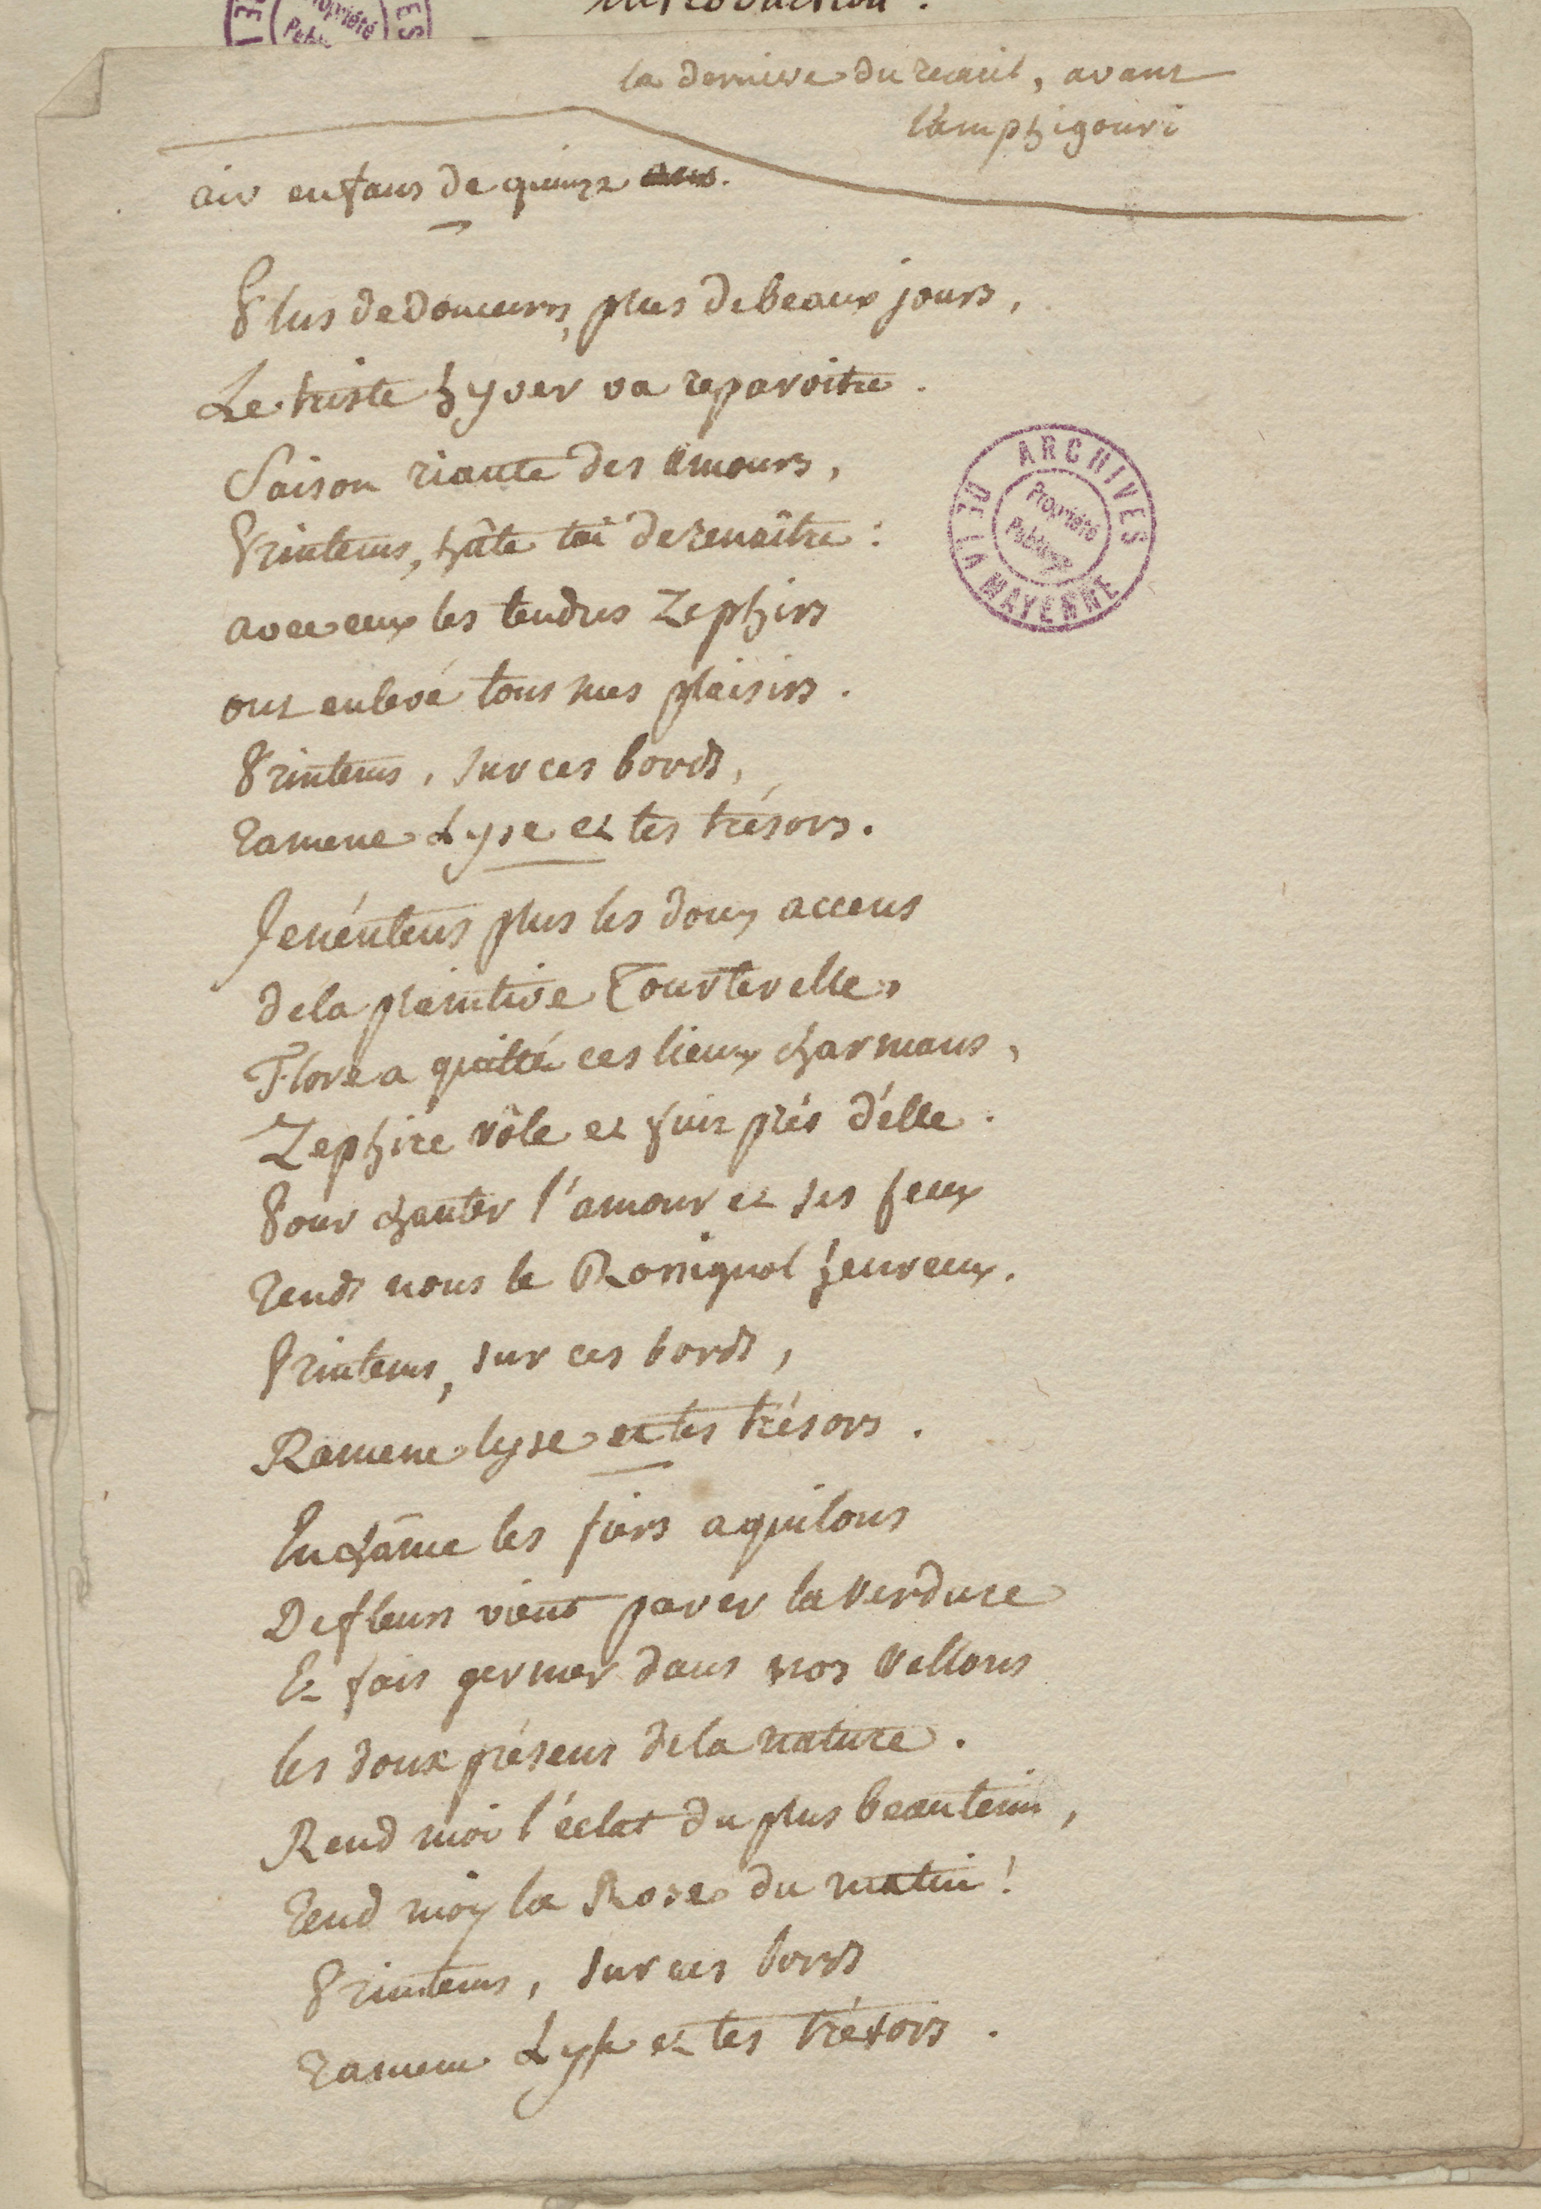 introduction.
la derniere du recueil, avant
l'amphigouri
air enfans de quinze ans.
Plus de douceurs, plus de beaux jours,
Le triste hyver va reparoitre.
Saison riante des amours,
Printems, hâte toi de renaître :
avec eux les tendres Zephirs
ont enlevé tous mes plaisirs.
Printems, sur ces bords,
ramene Lyse et tes trésors.
Je n'entens plus les doux accens
de la plaintive Tourterelle,
Flore a quitté ces lieux charmans,
Zephire vôle et fuit près d'elle.
Pour chanter l'amour et ses feux
rends nous le Rossignol heureux.
Printems, sur ces bords,
Ramene lyse et tes trésors.
Enchaîne les fiers aquilons
De fleurs viens parer la verdure
Et fais germer dans nos vallons
les doux présens de la nature.
Rend moi l'éclat du plus beau tein,
rend moy la Rose du matin !
Printems, sur ces bords
ramene Lyse et tes trésors.
ARCHIVES DE LA MAYENNE
Propriété
Publique